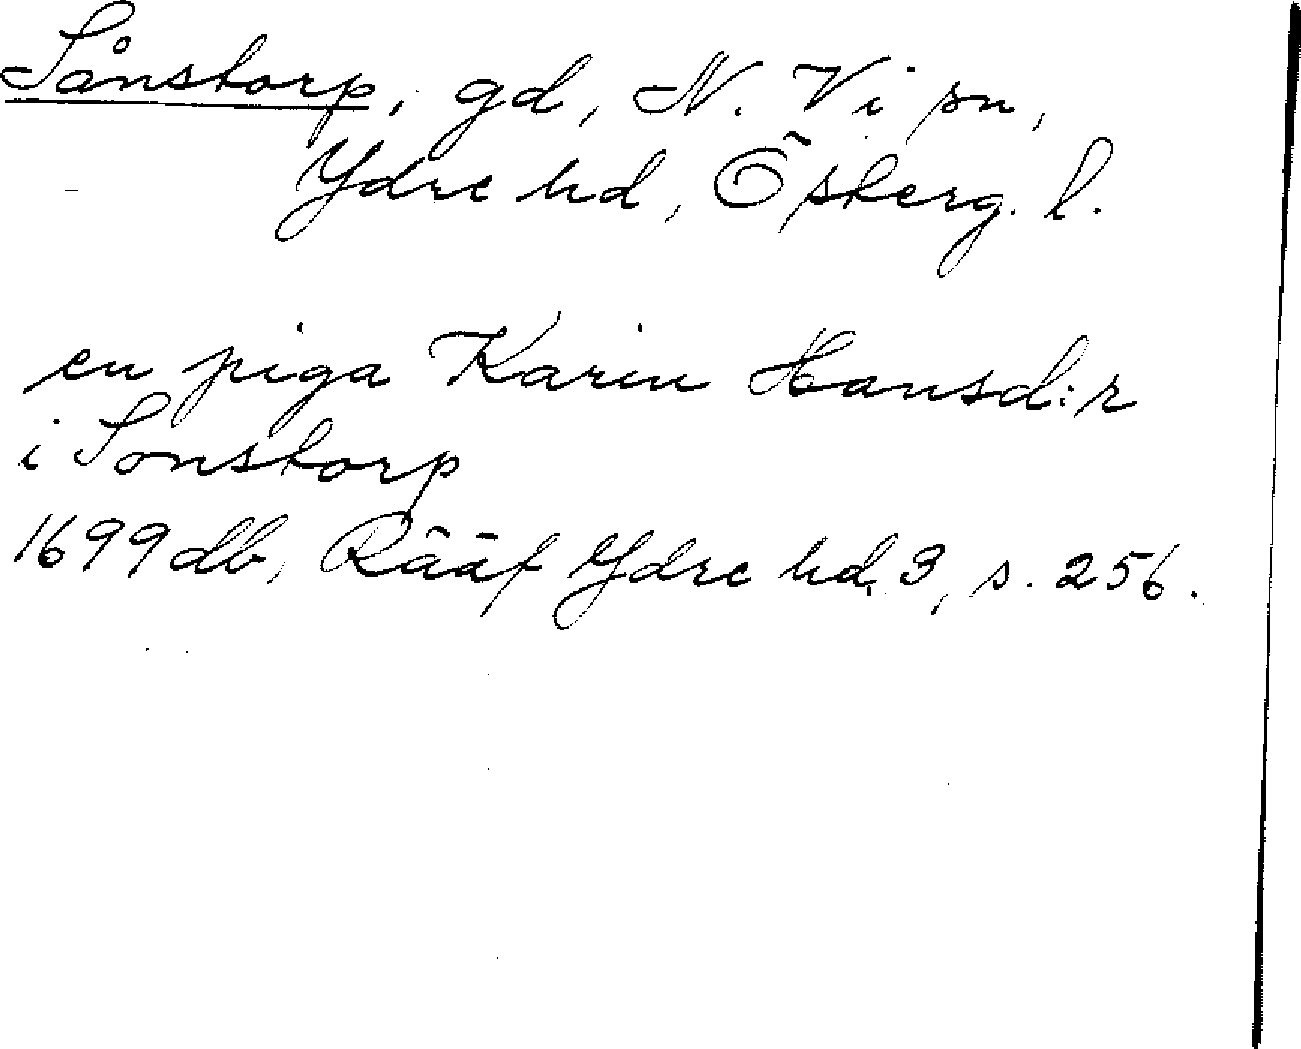 Sånstorp, gd, N. Vi sn,
Ydre hd, Österg. l.
en piga Karin Hansd:r
i Sonstorp
1699 db, Rääf Ydre hd, 3, s. 256.